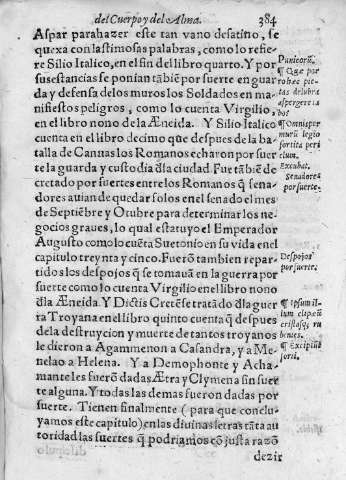 del Cuerpo y del Alma. 384
Aspar parahazer este tan vano desatino, se
quexa con lastimosas palabras, como lo refie
re Silio Italico, en el fin del libro quarto. Y por
sus estancias se ponian tãbiẽ por suerte en guar
da y defensa de los muros los Soldados en ma
nifiestos peligros, como lo cuenta Virgilio,
en el libro nono de la Æneida. Y Silio Italico
cuenta en el libro decimo que despues de la ba
talla de Cannas los Romanos echaron por suer
te la guarda y custodia đla ciudad. Fue tãbiẽ de
cretado por suertes entre los Romanos q̃ sena
dores auian de quedar solos en el senado el mes
de Septiẽbre y Octubre para determinar los ne
gocios graues, lo qual estatuyo el Emperador
Augusto como lo cuẽta Suetonio en su vida en el
capitulo treynta y cinco. Fuerõ tambien repar
tidos los despojos q̃ se tomauã en la guerra por
suerte como lo cuenta Virgilio en el libro nono
đla Æneida. Y Dictis Cretẽse tratãdo đla guer
ra Troyana en el libro quinto cuenta q̃ despues
dela destruycion y muerte de tantos troyanos
le dieron a Agammenon a Casandra, y a Me-
nelao a Helena. Y a Demophonte y Acha-
mante les fuerõ dadas Ætra y Clymena sin suer
te alguna. Y todas las demas fueron dadas por
suerte. Tienen finalmente (para que conclu-
yamos este capitulo) en las diuinas letras tãta au
toridad las suertes q̃ podriamos cõ justa razõ
dezir
Punicorũ.
¶ Quæ por
robæ pie-
tas delubra
aspergere ta
bo?
¶ Omnis per
murũ legio
sortita peri
clum.
Excubat.
Senadores
por suerte.
Despojos
por suerte.
¶ Ipsum il-
lum clipeũ
cristasq́; ru
bentes.
¶ Excipiam
sorti.